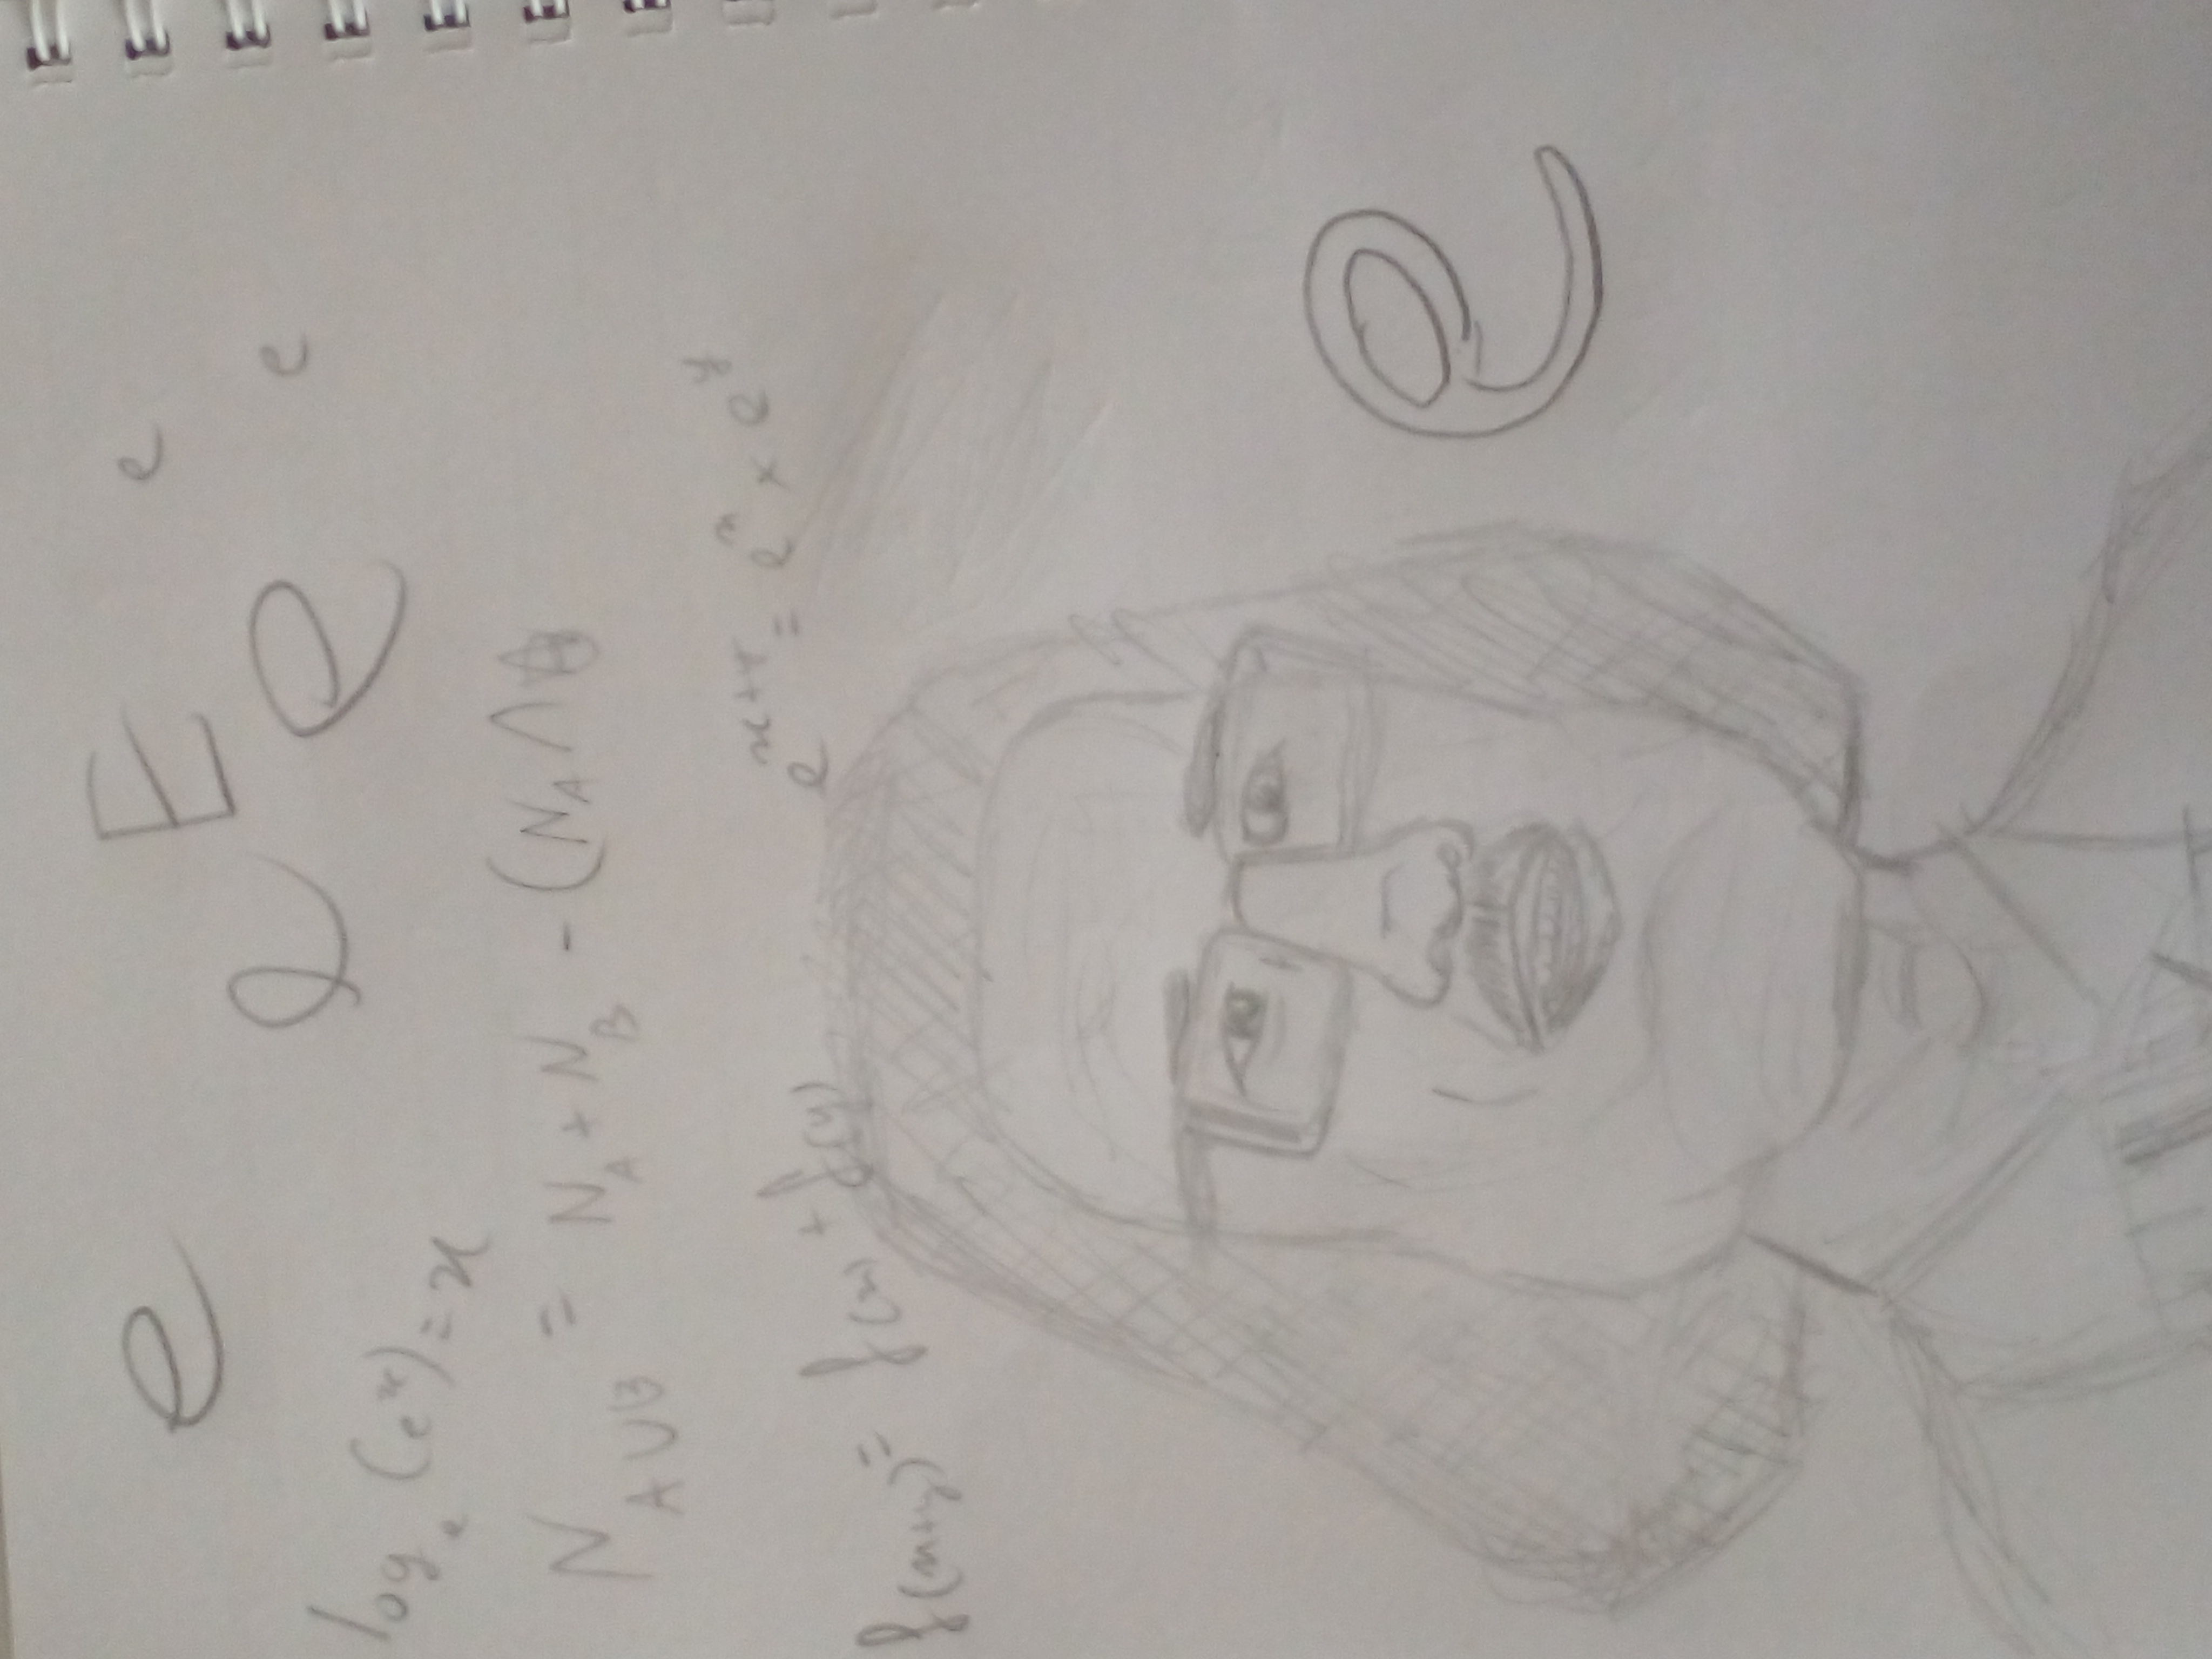 e E e
e e e
logₑ (eˣ) = x
N_A∪B = N_A + N_B - (N_A ∩
e^x+y = e^x × e^y
f(x+y) = f(x) + f(y)
e